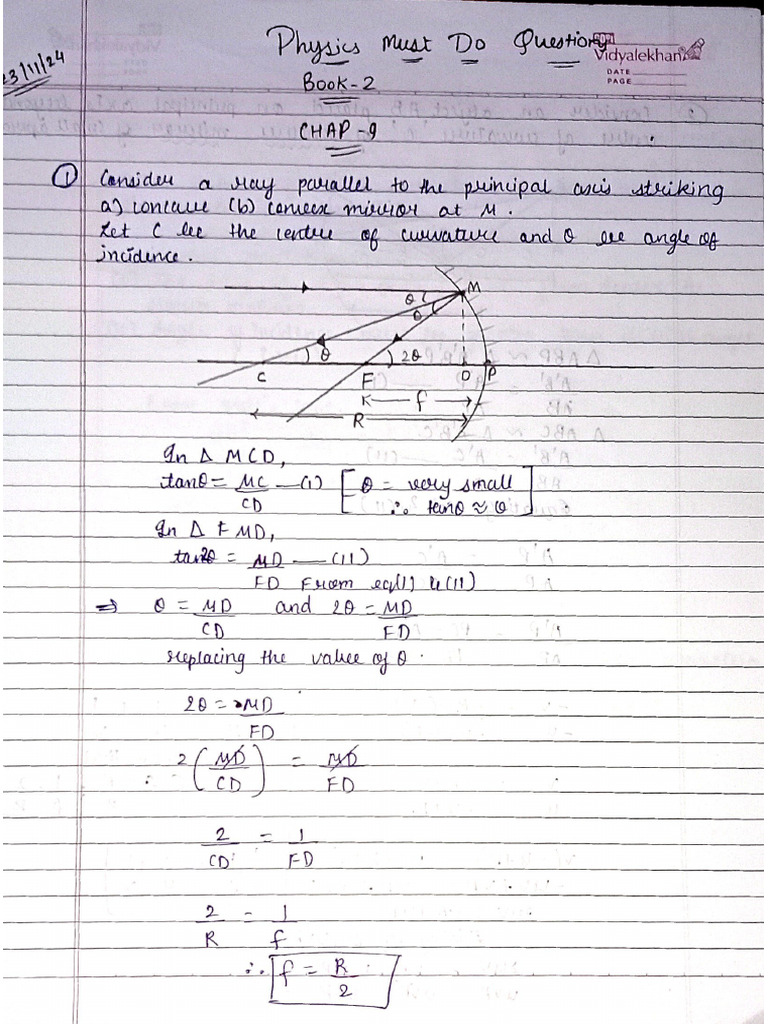 Physics Must Do Questions
Vidyalekhan
DATE
PAGE
23/11/24
Book-2
CHAP-9
① Consider a ray parallel to the principal axis striking
a) concave (b) convex mirror at M.
Let C be the centre of curvature and θ be angle of
incidence.
M
θ
θ
θ
2θ
C F D P
f
R
In Δ MCD,
tanθ = MC/CD —(i) [θ = very small ∴ tanθ ≈ θ]
In Δ FMD,
tan2θ = MD/FD —(II)
From eq(I) & (II)
⇒ θ = MD/CD and 2θ = MD/FD
replacing the value of θ.
2θ = MD/FD
2(MD/CD) = MD/FD
2/CD = 1/FD
2/R = 1/f
∴ f = R/2